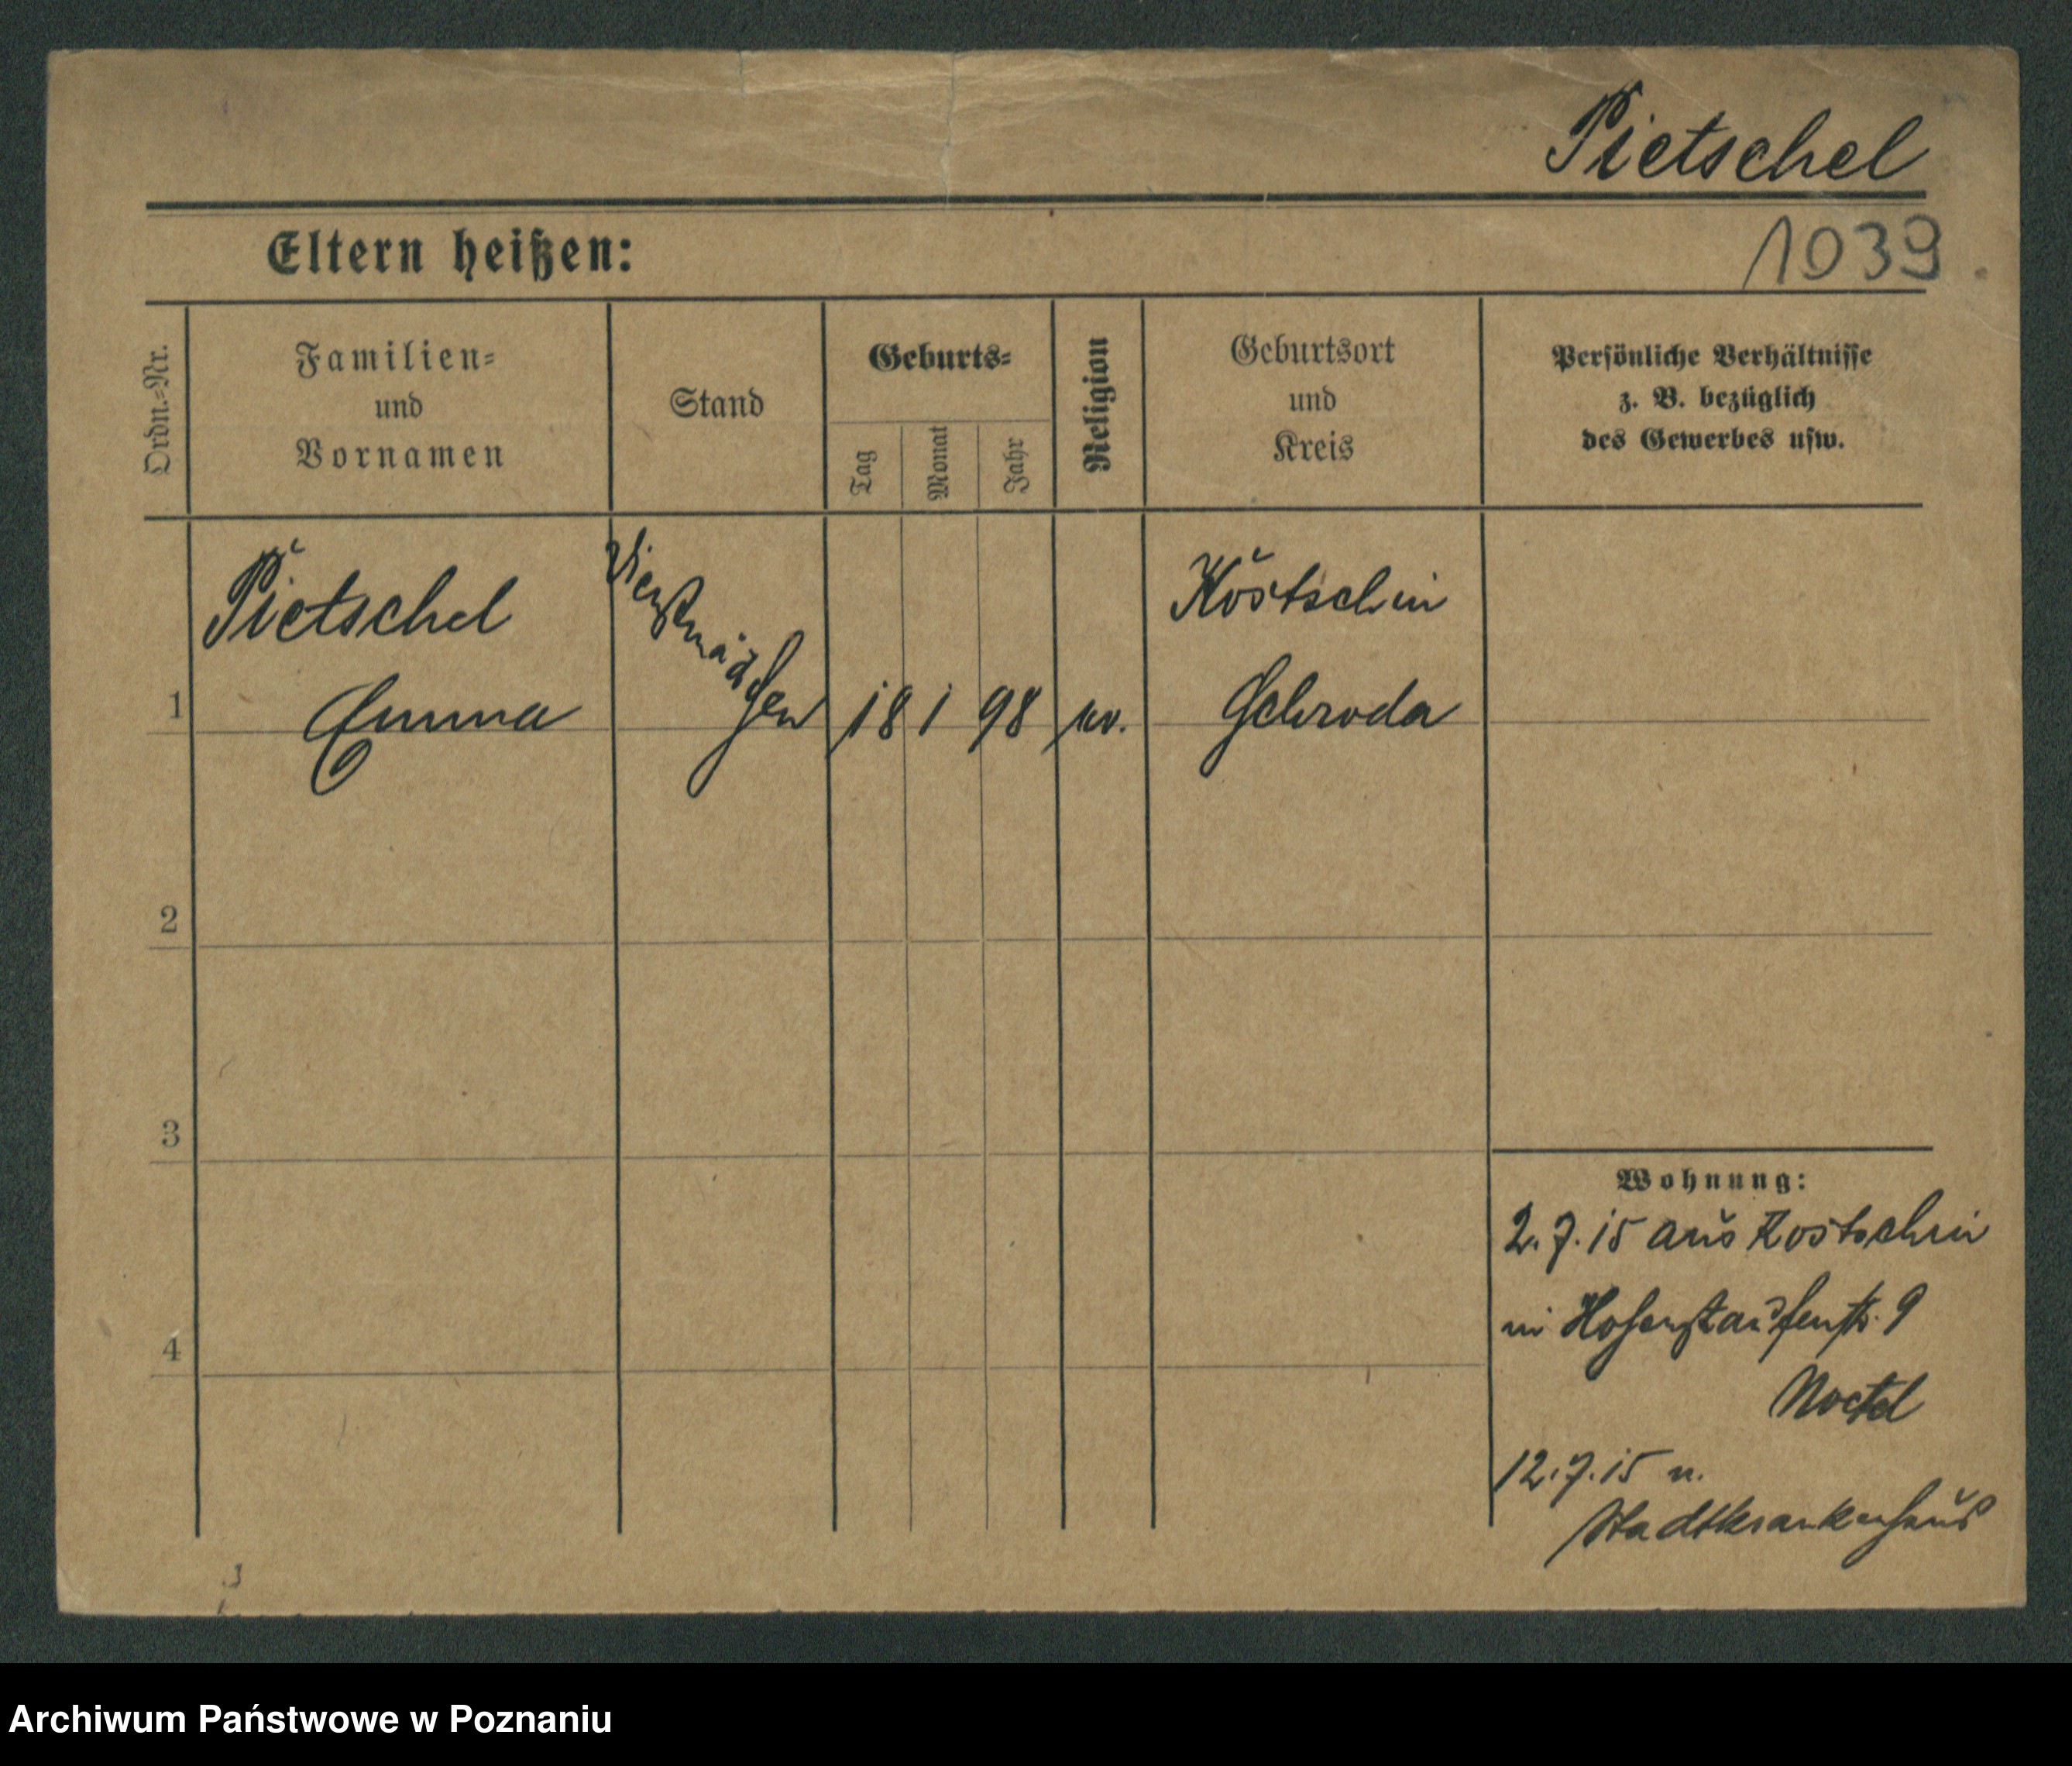 Pietschel
Eltern heißen:
1039
Ordn.=Nr.
Familien=
und
Vornamen
Stand
Geburts=
Tag
Monat
Jahr
Religion
Geburtsort
und
Kreis
Persönliche Verhältnisse
z. B. bezüglich
des Gewerbes usw.
1
Pietschel
Emma
Dienstmädchen
18 1 98
ev.
Kostschin
Schroda
2
3
4
Wohnung:
2.7.15 aus Kostschin
in Hohenstaufenstr. 9
12.7.15 n.
Stadtkrankenhaus
3
Archiwum Państwowe w Poznaniu